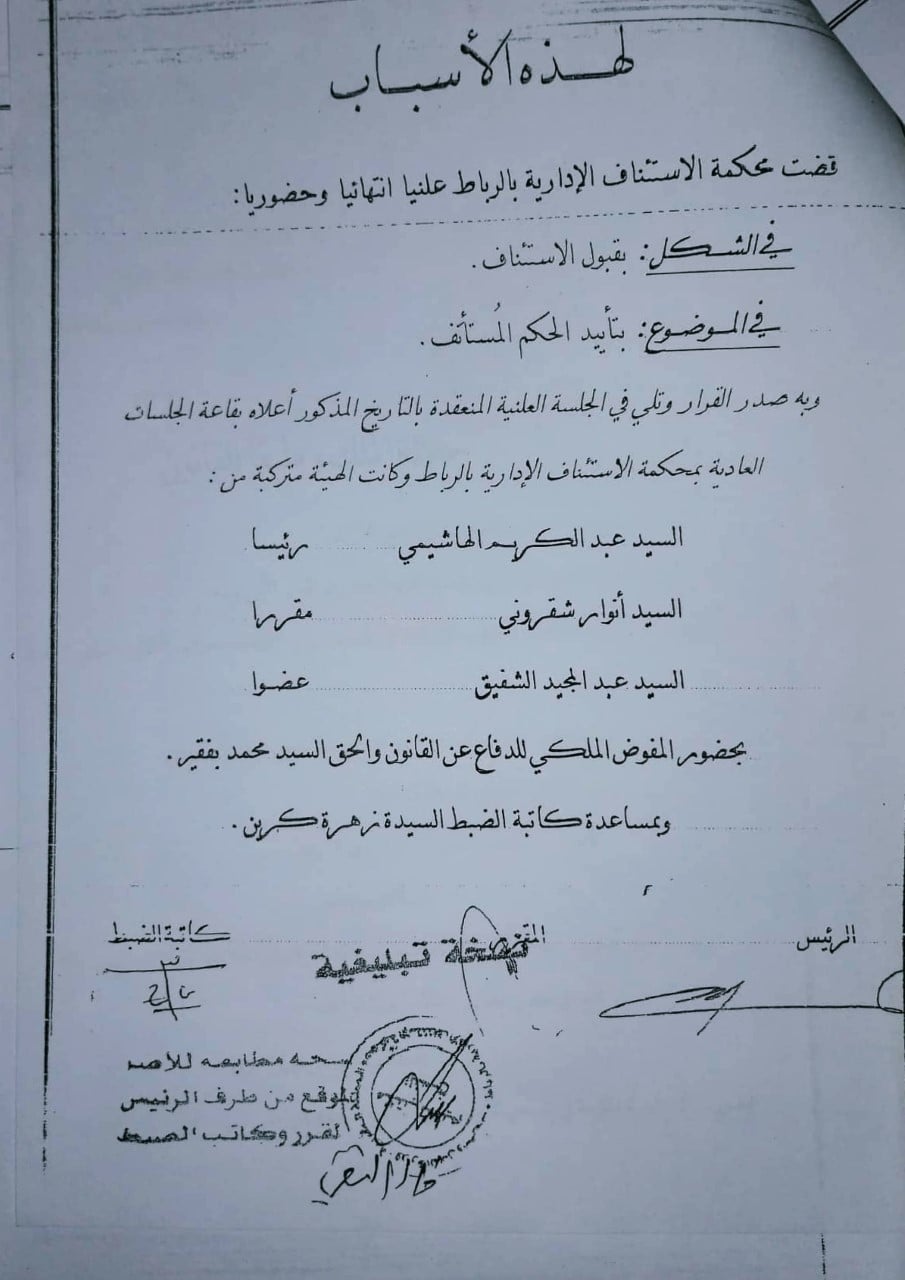 لهذه الأسباب
قضت محكمة الاستئناف الإدارية بالرباط علنيا انتهائيا وحضوريا:
في الشكل: بقبول الاستئناف.
في الموضوع: بتأييد الحكم المُستأنف.
وبه صدر القرار وتلي في الجلسة العلنية المنعقدة بالتاريخ المذكور أعلاه بقاعة الجلسات
العادية بمحكمة الاستئناف الإدارية بالرباط وكانت الهيئة متركبة من :
السيد عبد الكريم الهاشيمي رئيسا
السيد أنوار شقروني مقررا
السيد عبد المجيد الشفيق عضوا
بحضور المفوض الملكي للدفاع عن القانون والحق السيد محمد بفقير.
وبمساعدة كاتبة الضبط السيدة زهرة كرين.
الرئيس المقرر كاتبة الضبط
نسخة تبليغية
نسخة مطابقة للأصل
الموقع من طرف الرئيس
المقرر وكاتب الضبط